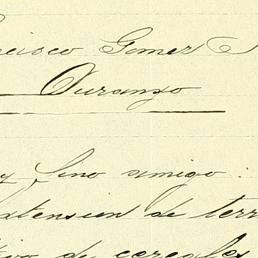 cisco Gomez
Durango
y fino amigo:
xtensión de terr
tivo de cereales